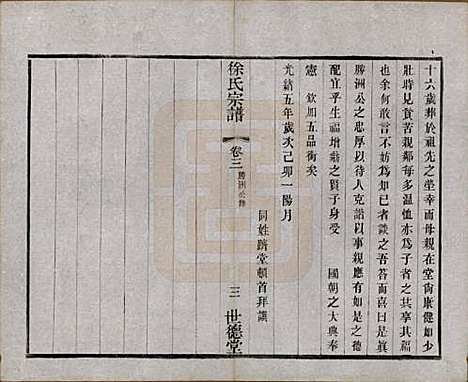 十六歲葬於祖先之塋幸而母親在堂尙康健如少
壯時見貧苦親鄰每多溫恤亦為子者之幸
也余何敢言不妨為知己者談之吾答而喜曰是眞
勝洲公之忠厚以待人克諧以事親應有如是之德
配宜乎生福增勳之賢子身受 國朝之大典奉
憲 欽加五品銜矣
光緒五年歲次己卯一陽月
同姓躋堂頓首拜譔
徐氏宗譜
卷三 勝洲公傳
三 世德堂